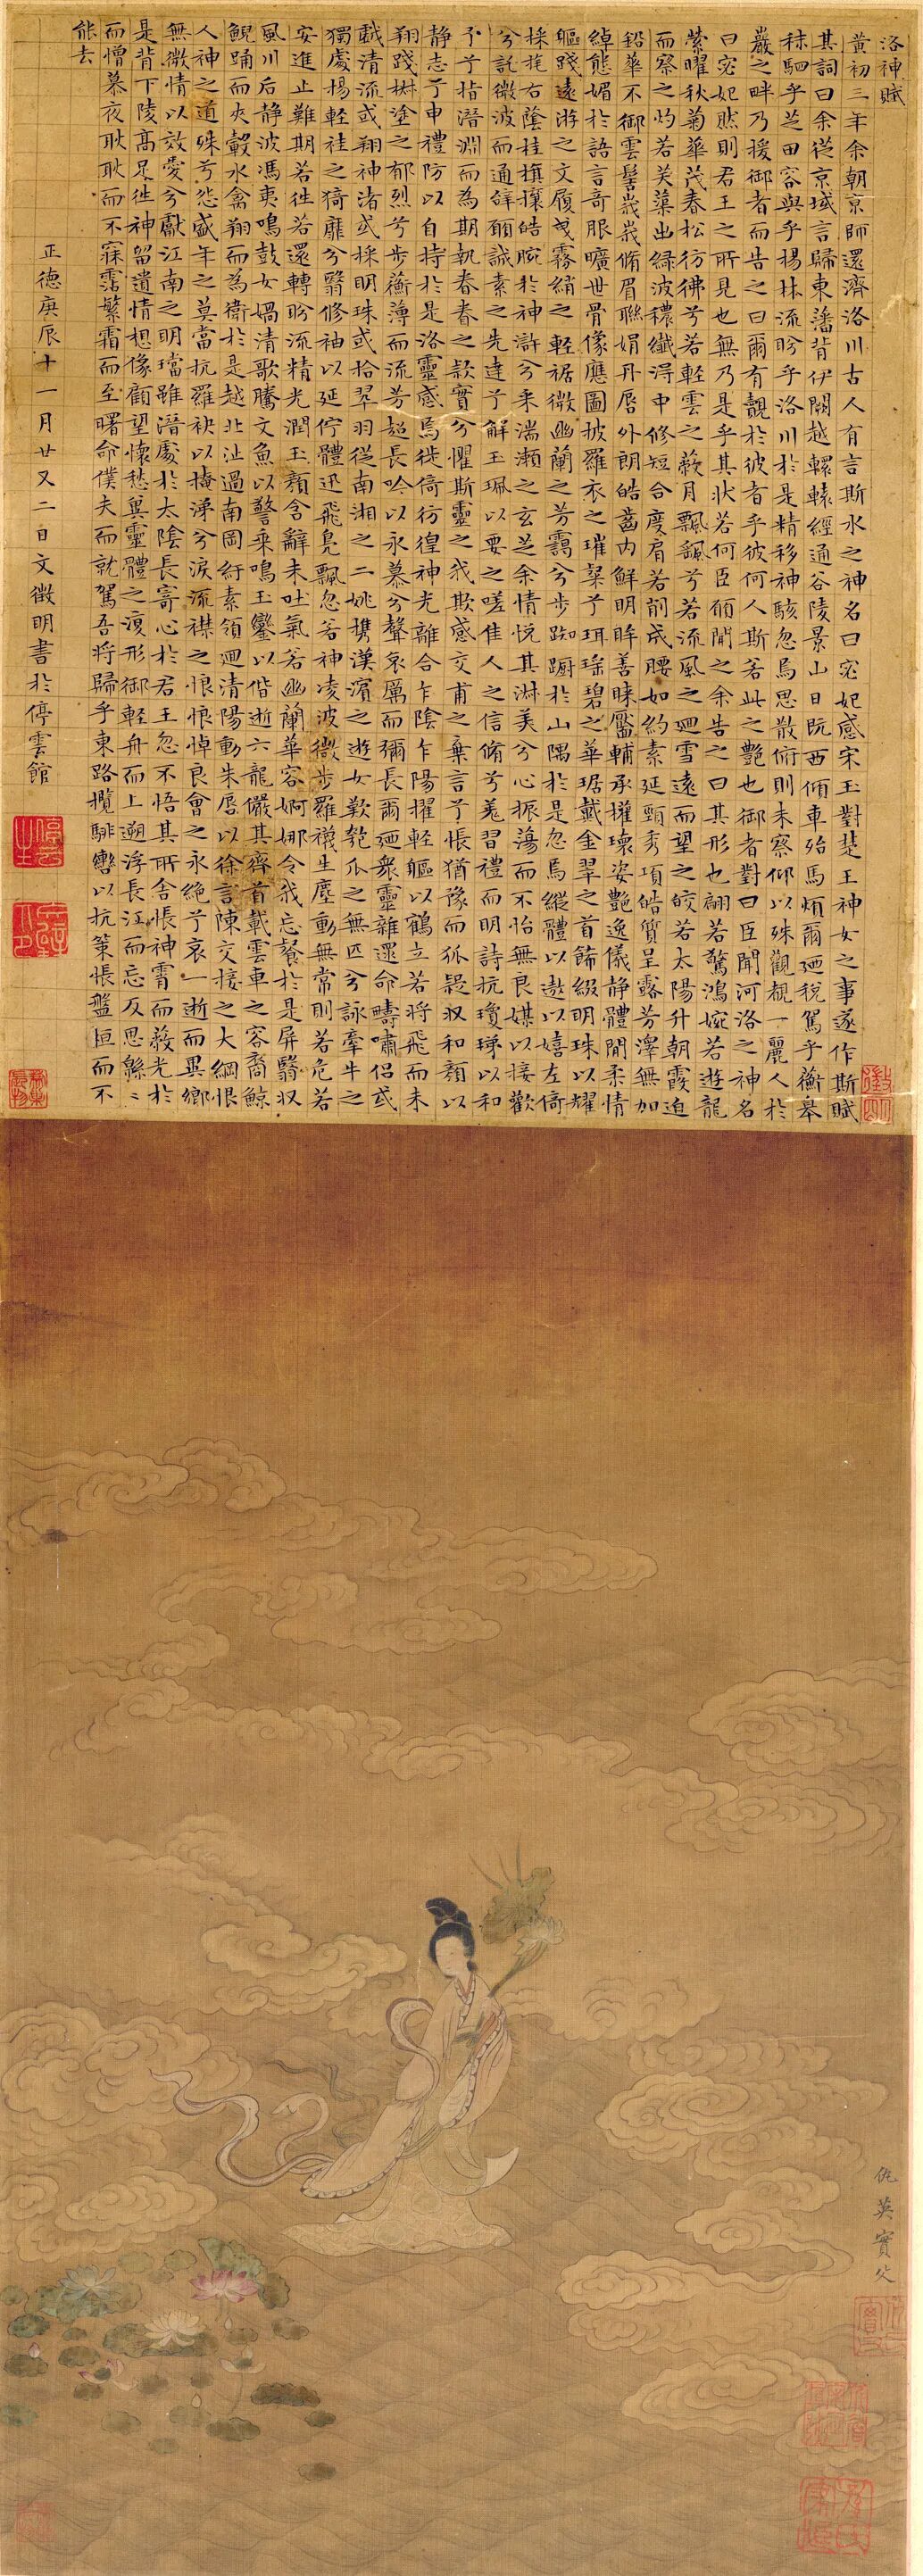 洛神賦
黃初三年余朝京師還濟洛川古人有言斯水之神名曰宓妃感宋玉對楚王神女之事遂作斯賦
其詞曰余從京域言歸東藩背伊闕越轘轅經通谷陵景山日既西傾車殆馬煩爾迺稅駕乎蘅皋
秣駟乎芝田容與乎楊林流眄乎洛川於是精移神駭忽焉思散俯則未察仰以殊觀覩一麗人於
巖之畔乃援御者而告之曰爾有覿於彼者乎彼何人斯若此之艷也御者對曰臣聞河洛之神名
曰宓妃然則君王之所見也無乃是乎其狀若何臣願聞之余告之曰其形也翩若驚鴻婉若遊龍
榮曜秋菊華茂春松彷彿兮若輕雲之蔽月飄颻兮若流風之迴雪遠而望之皎若太陽升朝霞迫
而察之灼若芙蕖出綠波穠纖得中修短合度肩若削成腰如約素延頸秀項皓質呈露芳澤無加
鉛華不御雲髻峩峩脩眉聯娟丹唇外朗皓齒內鮮明眸善睐靨輔承權瓌姿艷逸儀静體閒柔情
綽態媚於語言奇服曠世骨像應圖披羅衣之璀粲兮珥瑤碧之華琚戴金翠之首飾綴明珠以耀
軀踐遠游之文履曳霧綃之輕裾微幽蘭之芳藹兮步踟蹰於山隅於是忽焉縱體以遨以嬉左倚
採旄右蔭桂旗攘皓腕於神滸兮采湍瀨之玄芝余情悅其淋美兮心振蕩而不怡無良媒以接歡
兮託微波而通辭願誠素之先達兮解玉珮以要之嗟佳人之信脩兮羌習禮而明詩抗瓊珶以和
予兮指潛淵而為期執眷眷之款實兮懼斯靈之我欺感交甫之棄言兮悵猶豫而狐疑収和顏以
静志兮申禮防以自持於是洛靈感焉徙倚彷徨神光離合乍陰乍陽擢輕軀以鶴立若將飛而未
翔踐椒塗之郁烈兮步蘅薄而流芳超長吟以永慕兮聲哀厲而彌長爾迺衆靈雜遝命疇嘯侶或
戲清流或翔神渚或採明珠或拾翠羽從南湘之二姚攜漢濱之遊女歎匏瓜之無匹兮詠牽牛之
獨處揚輕袿之猗靡兮翳修袖以延佇體迅飛鳧飄忽若神凌波微步羅襪生塵動無常則若危若
安進止難期若往若還轉眄流精光潤玉顏含辭未吐氣若幽蘭華容婀娜令我忘餐於是屏翳収
風川后静波馮夷鳴鼓女媧清歌騰文魚以警乘鳴玉鑾以偕逝六龍儼其齊首載雲車之容裔鯨
鯢踊而夾轂水禽翔而為衛於是越北沚過南岡紆素領迴清陽動朱唇以徐言陳交接之大綱恨
人神之道殊兮怨盛年之莫當抗羅袂以掩涕兮淚流襟之悢悢悼良會之永絕兮哀一逝而異鄉
無微情以效愛兮獻江南之明璫雖潛處於太陰長寄心於君王忽不悟其所舍悵神霄而蔽光於
是背下陵高足往神留遺情想像顧望懷愁冀靈體之復形御輕舟而上遡浮長江而忘反思緜〻
而增慕夜耿耿而不寐霑繁霜而至曙命僕夫而就駕吾將歸乎東路攬騑轡以抗策悵盤桓而不
能去
正德庚辰十一月廿又二日文徵明書於停雲館
徵明
仇英實父